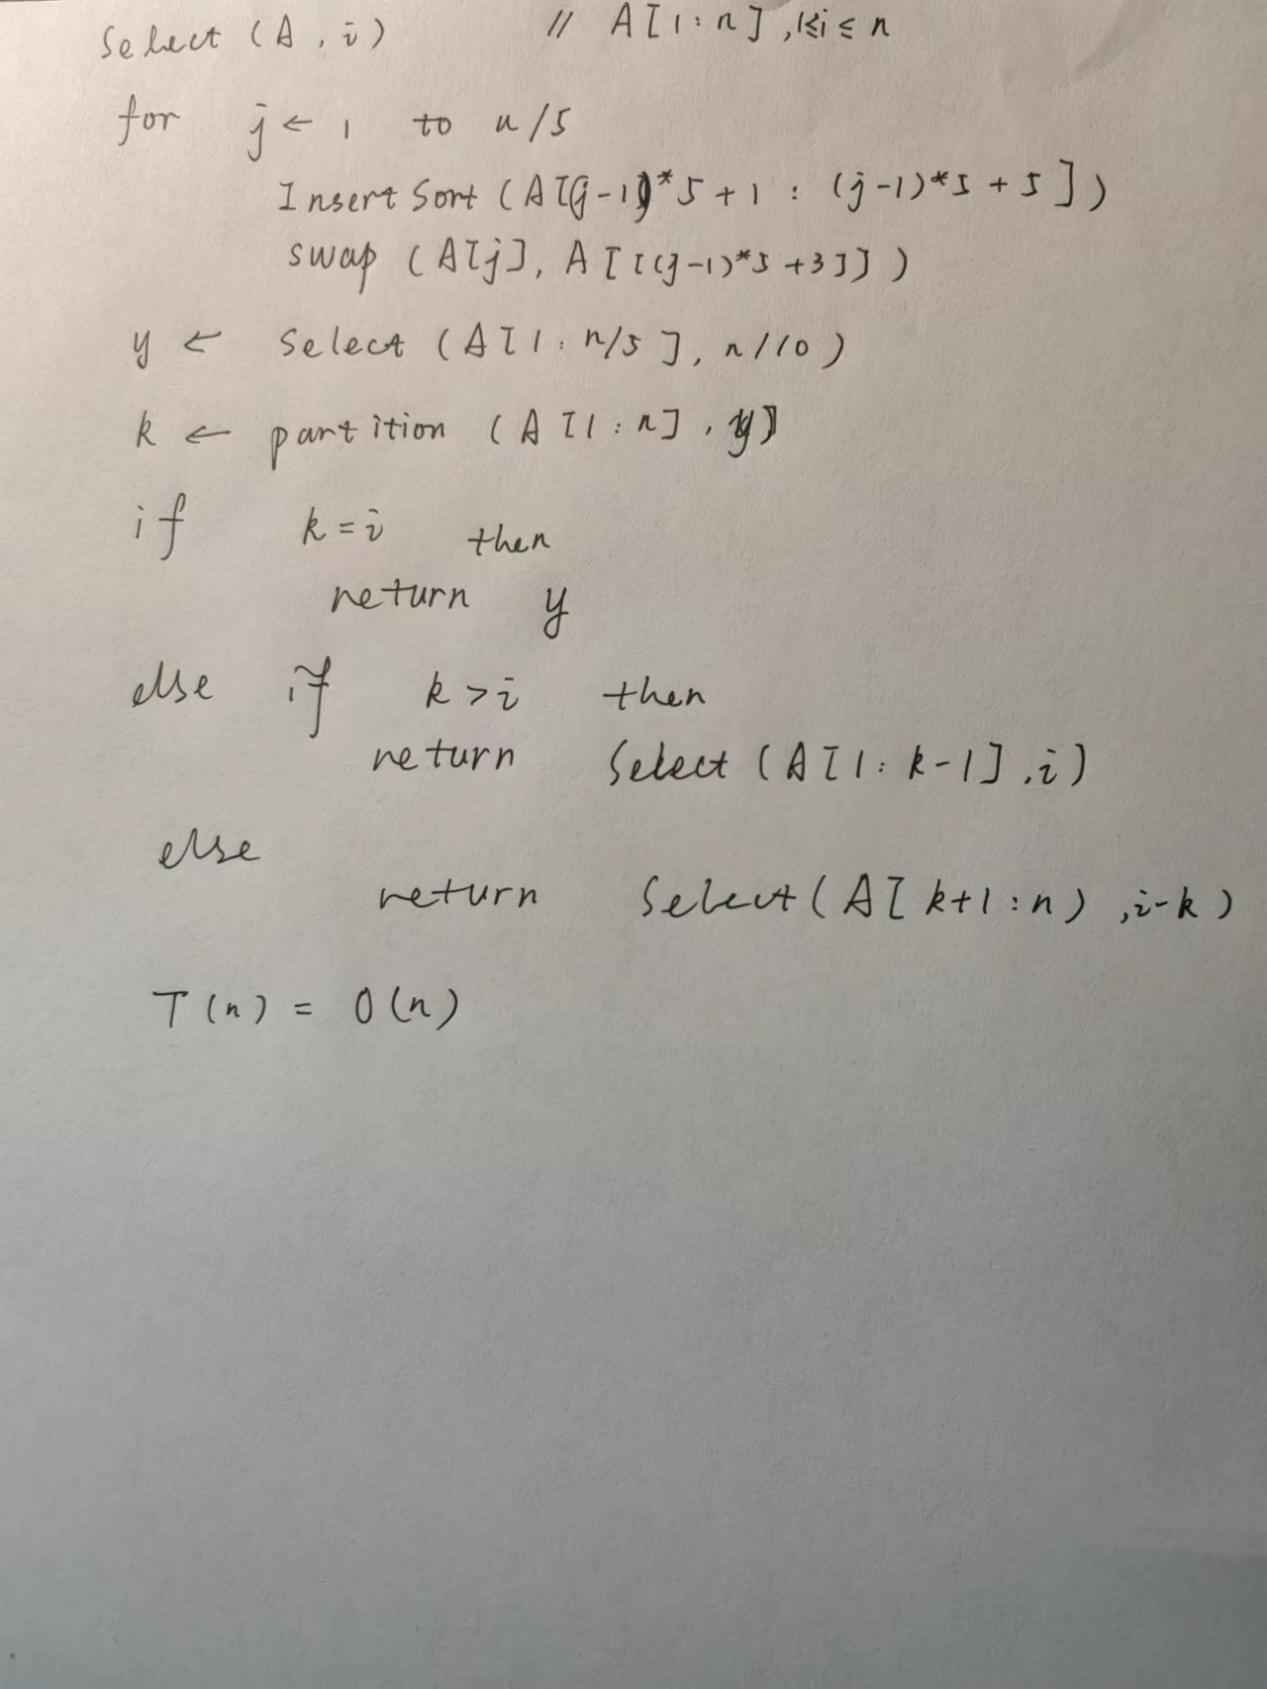 Select (A, i) // A[1:n], 1≤i≤n
for j ← 1 to n/5
Insert Sort (A[(j-1)*5+1 : (j-1)*5+5])
swap (A[j], A[[(j-1)*5+3]])
y ← Select (A[1:n/5], n/10)
k ← partition (A[1:n], y)
if k=i then
return y
else if k>i then
return Select (A[1:k-1], i)
else
return Select (A[k+1:n), i-k)
T(n) = O(n)